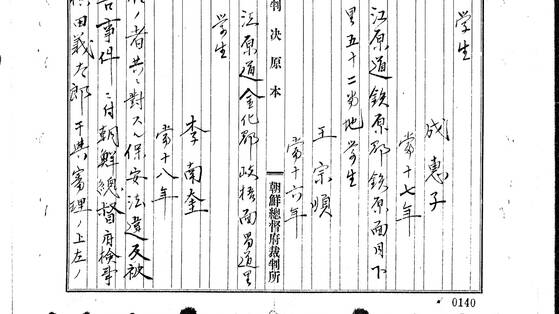 学生
成惠子
當十七年
江原道鉄原郡鉄原面月下
里五十二番地学生
王宗順
當十六年
判決原本
朝鮮總督府裁判所
江原道金化郡岐梧面昌道里
学生
李南奎
當十八年
者共ニ對スル保安法違反被
告事件ニ付朝鮮總督府檢事
田義太郎干與審理ノ上左ノ
0140